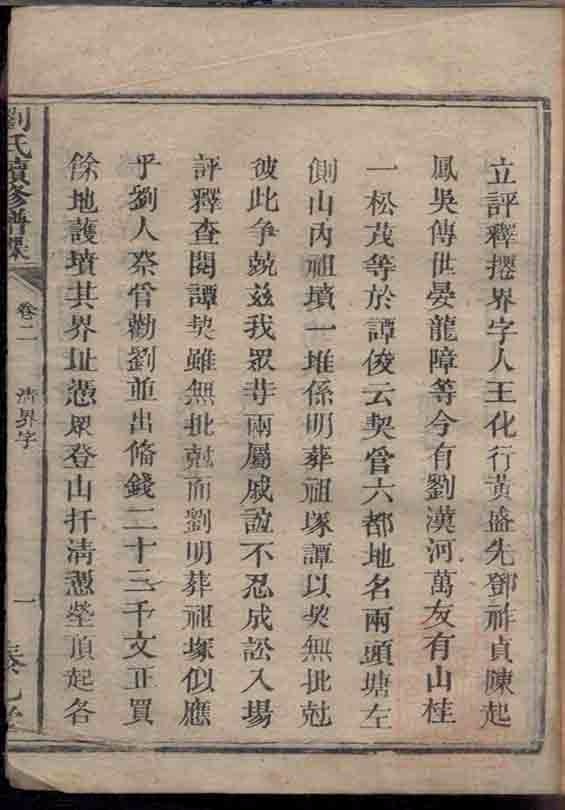 立評釋㩀界字人王化行黃盛先鄧祚貞陳起
鳳吳傳世晏龍障等今有劉漢河萬友有山桂
一松茂等於譚俊云契管六都地名兩頭塘左
側山內祖墳一堆係明葬祖塚譚以契無批尅
彼此争競兹我眾等兩屬戚誼不忍成訟入場
評釋查閱譚契雖無批尅而劉明葬祖塚似應
乎劉人祭管勸劉並出脩錢二十三千文正買
餘地護墳其界址憑眾登山扦清憑塋頂起各
劉氏續修譜
卷二
清界字
一